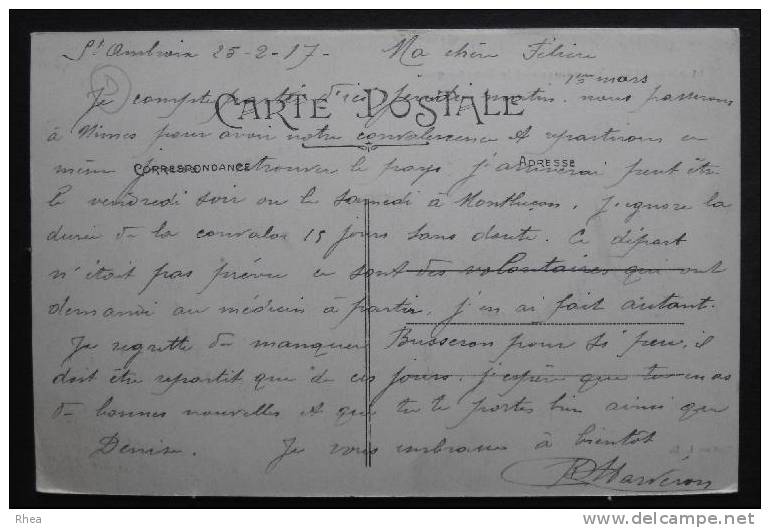 St Ambroix 25-2-17- Ma chère
1er mars
Je compte d'ici jeudi matin. nous passerons
CARTE POSTALE
à Nimes pour avoir notre convalescence et repartirons
même trouver le pays j'arriverai peut être
CORRESPONDANCE
ADRESSE
le vendredi soir ou le samedi à Montluçon. J'ignore la
durée de la convalo 15 jours sans doute. Ce départ
n'était pas prévu ce sont des volontaires qui ont
demandé au médecin à partir, j'en ai fait autant.
Je regrette de manquer Busseron pour si peu, il
doit être repartit que de ces jours. j'espère que tu en as
de bonnes nouvelles et que tu te portes bien ainsi que
Denise. Je vous embrasse à bientôt
D
Rhea
delcampe.net